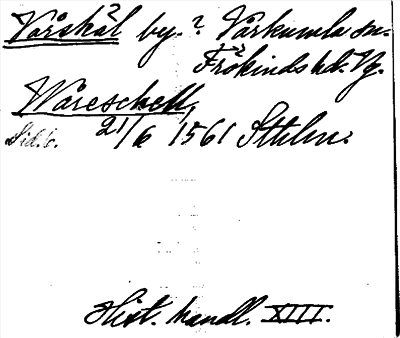 Vårskäl? by.? Vårkumla sn.
Frökinds hd. Vg.
Wåreschell,
Sid. 6. 21/6 1561 Sthlm.
Hist. handl. XIII.